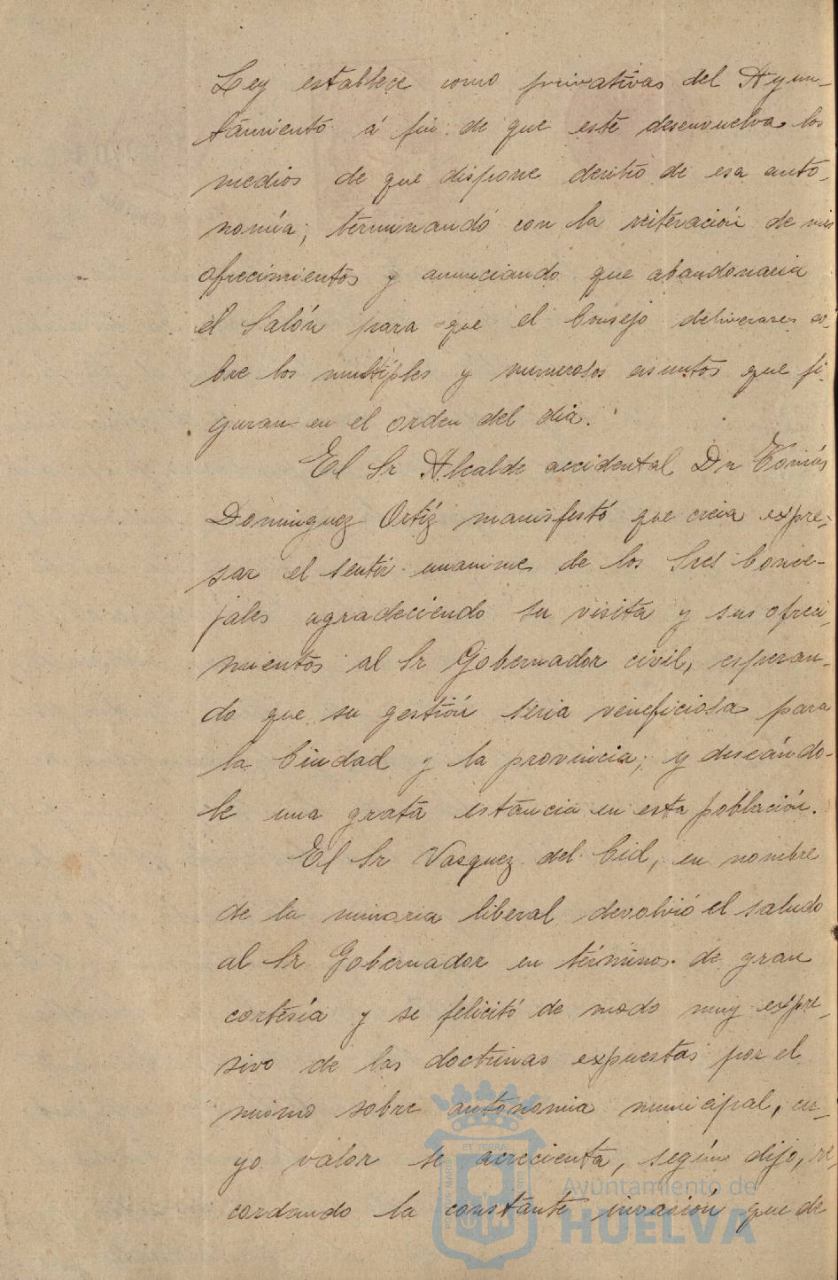 Ley establece como privativas del Ayun-
tamiento á fin de que este desenvuelva los
medios de que dispone dentro de esa auto-
nomía; terminando con la reiteración de sus
ofrecimientos y anunciando que abandonaria
el Salón para que el Consejo deliverase so-
bre los multiples y numerosos asuntos que fi-
guran en el orden del dia.
El Sr Alcalde accidental Dn Tomás
Dominguez Ortiz manifestó que creia expre-
sar el sentir unanime de los Sres Conce-
jales agradeciendo su visita y sus ofreci-
mientos al Sr Gobernador civil, esperan-
do que su gestión seria veneficiosa para
la Ciudad y la provincia; y deseándo-
le una grata estancia en esta población.
El Sr Vasquez del Cid, en nombre
de la minoria liberal devolvió el saludo
al Sr Gobernador en términos de gran
cortesía y se felicitó de modo muy expre-
sivo de las doctrinas expuestas por el
mismo sobre autonomia municipal, cu-
yo valor se acrecienta, según dijo, re-
cordando la constante invasión que de
Ayuntamiento de
HUELVA